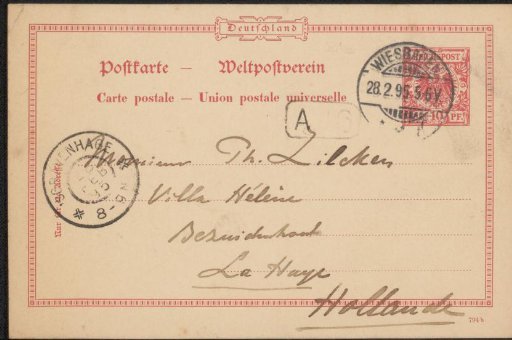 Deutschland
Postkarte — Weltpostverein
Carte postale — Union postale universelle
WIESBADEN
28.2.95.5-6N
10 PF.
A
'S GRAVENHAGE
8-9V
Monsieur Ph. Zilcken
Villa Hélène
Bezuidenhout
La Haye
Hollande